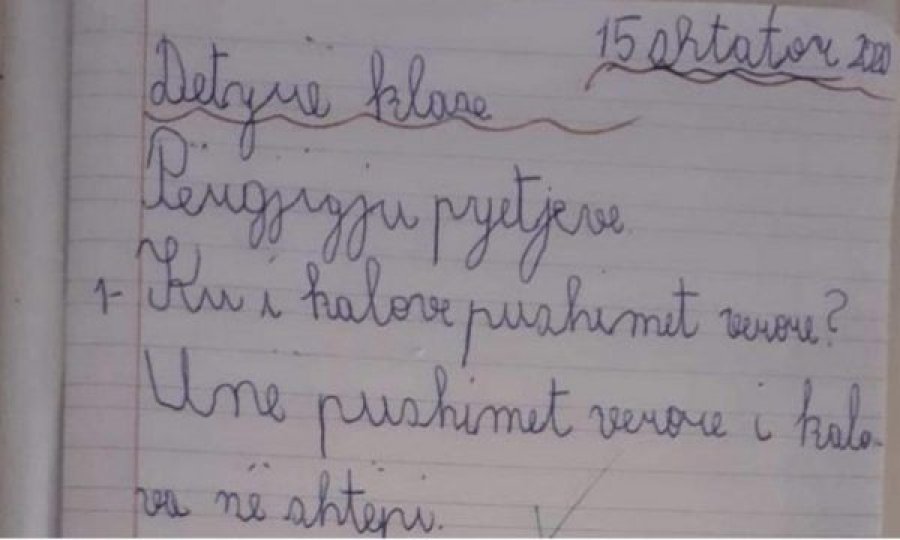 15 shtator 2020
Detyrë klase
Përgjigju pyetjeve.
1- Ku i kalove pushimet verore?
Unë pushimet verore i kalo-
va në shtëpi.